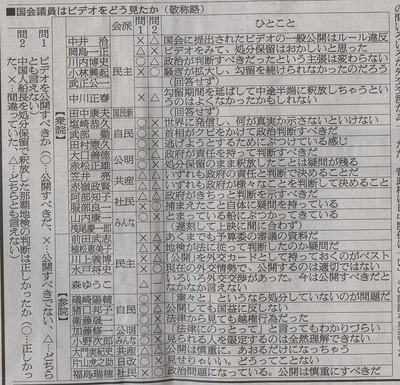 ■国会議員はビデオをどう見たか（敬称略）
会派 問1 問2 ひとこと
【衆院】
中井 洽 民主 国会に提出されたビデオの一般公開はルール違反
岡島一正 ビデオをみて、処分保留はおかしいと思った
川内博史 政治が判断すべきだったという主張は変わらない
小林興起 騒ぎが拡大し、勾留を続けられなかったのだろう
武正公一 （回答せず）
中川正春 勾留期間を延長して中途半端に釈放しちゃうというのはよくなかったかもしれない
田中康夫 国民新 （回答せず）
塩崎恭久 自民 世界に発信し、何が真実か示さないといけない
武部 勤 首相がクビをかけて政治判断すべきだ
田村憲久 逃げようとするためにぶつけている感じ
大口善徳 公明 政府が責任を持って判断すべきだ
赤松正雄 処分保留のまま釈放したことは疑問が残る
笠井 亮 共産 いずれも政府の責任と判断で決めることだ
赤嶺政賢 いずれも政府が様々なことを判断して決めること
阿部知子 社民 政府がきちっと判断を示すべきだ
服部良一 捕まえたこと自体に疑問を持っている
山内康一 みんな とまっている船にぶつかってきている
浅尾慶一郎 （遅刻して上映に間に合わず）
【参院】
前田武志 民主 あくまでも予算委の審議の資料だ
植松恵美子 地検が法に従って判断したのか疑問だ
川上義博 「公開」を外交カードとして持っておくのがベスト
水戸将史 現在の外交情勢で、公開するのは適切ではない
森ゆうこ いろいろ外交交渉があった。今は公開すべきだとはなかなか言えない
磯崎陽輔 自民 「粛々と」というなら処分していないのが問題だ
猪口邦子 公開しても国益に反しない
衛藤晟一 法律から見ても越権行為だった
加藤修一 公明 「法律にのっとって」と言ってもわかりづらい
小野次郎 みんな 見られる人を限定するのは全然理解できない
大門実紀史 共産 公開は慎重に。あおるだけになっちゃう
片山虎之助 日改 見せりゃいい。どうってことない
福島瑞穂 社民 政治問題になっている。公開は慎重にすべきだ
問1 ビデオを公開すべきか（○…公開すべきだ、×…公開すべきでない、△…どちらとも言えない）
問2 中国人船長を処分保留で釈放した那覇地検の判断は正しかったか（○…正しかった、×…間違っていた、△…どちらとも言えない）